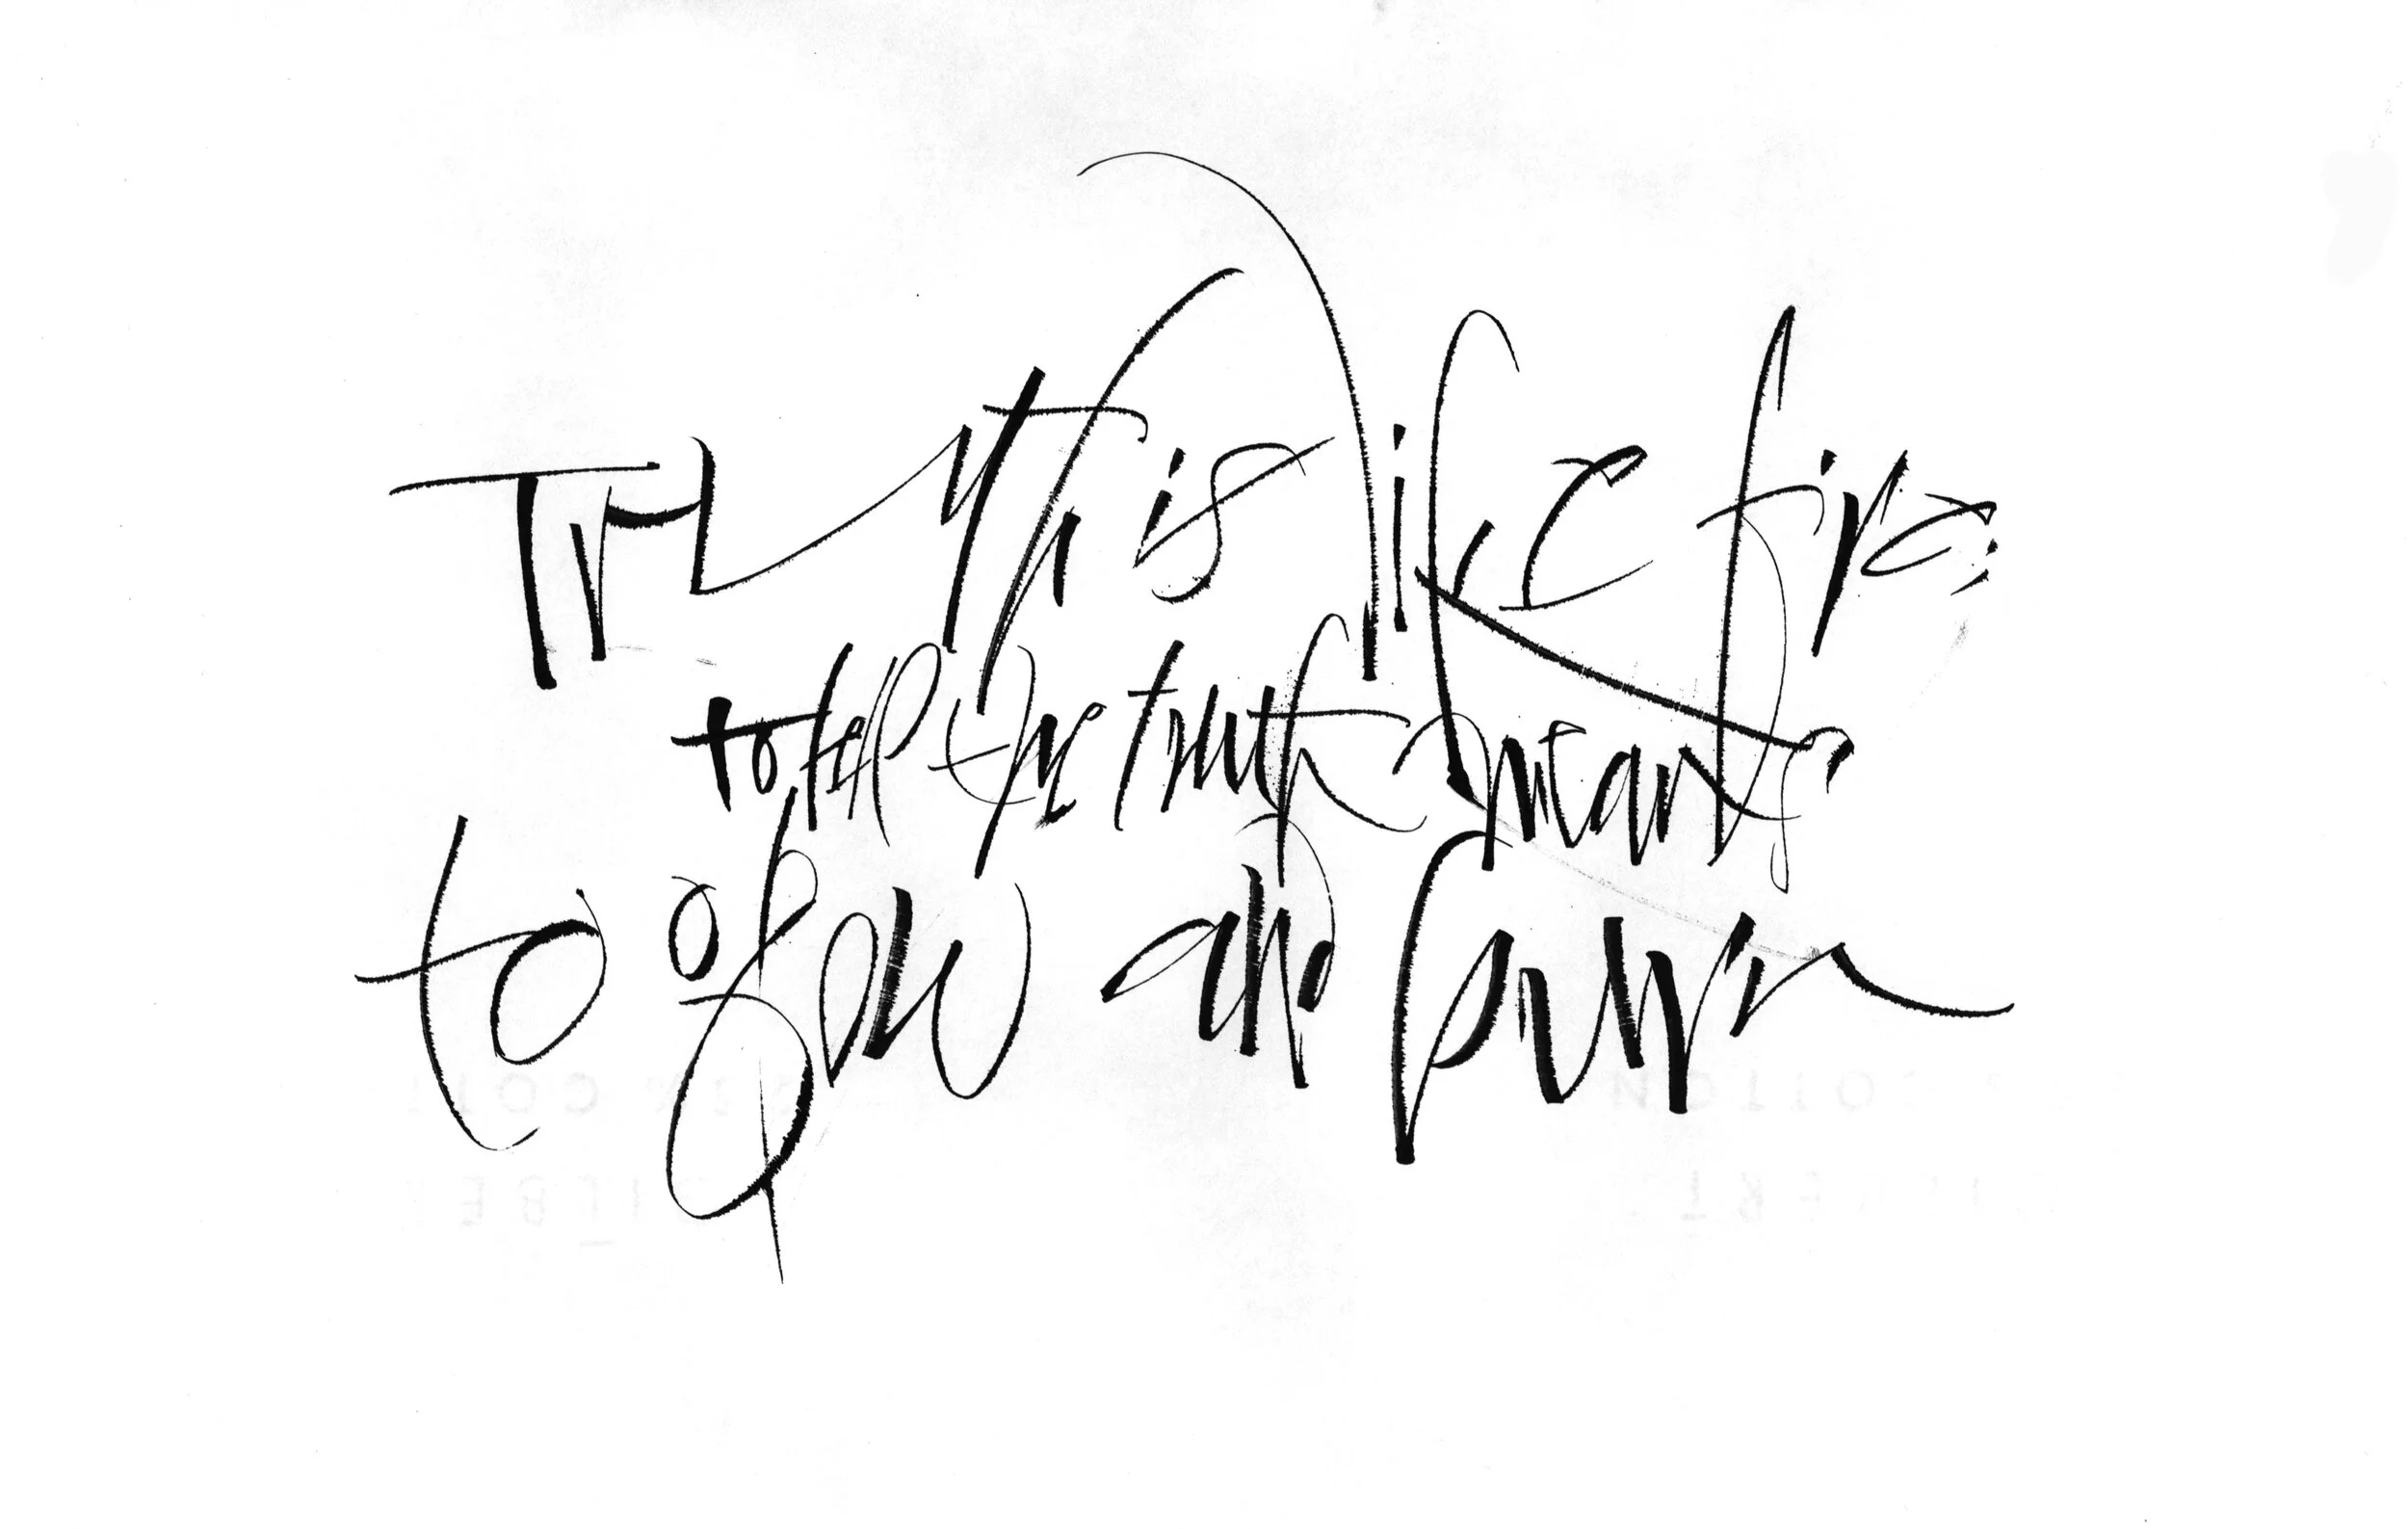 Truth is like fire;
to tell the truth means
to glow and burn